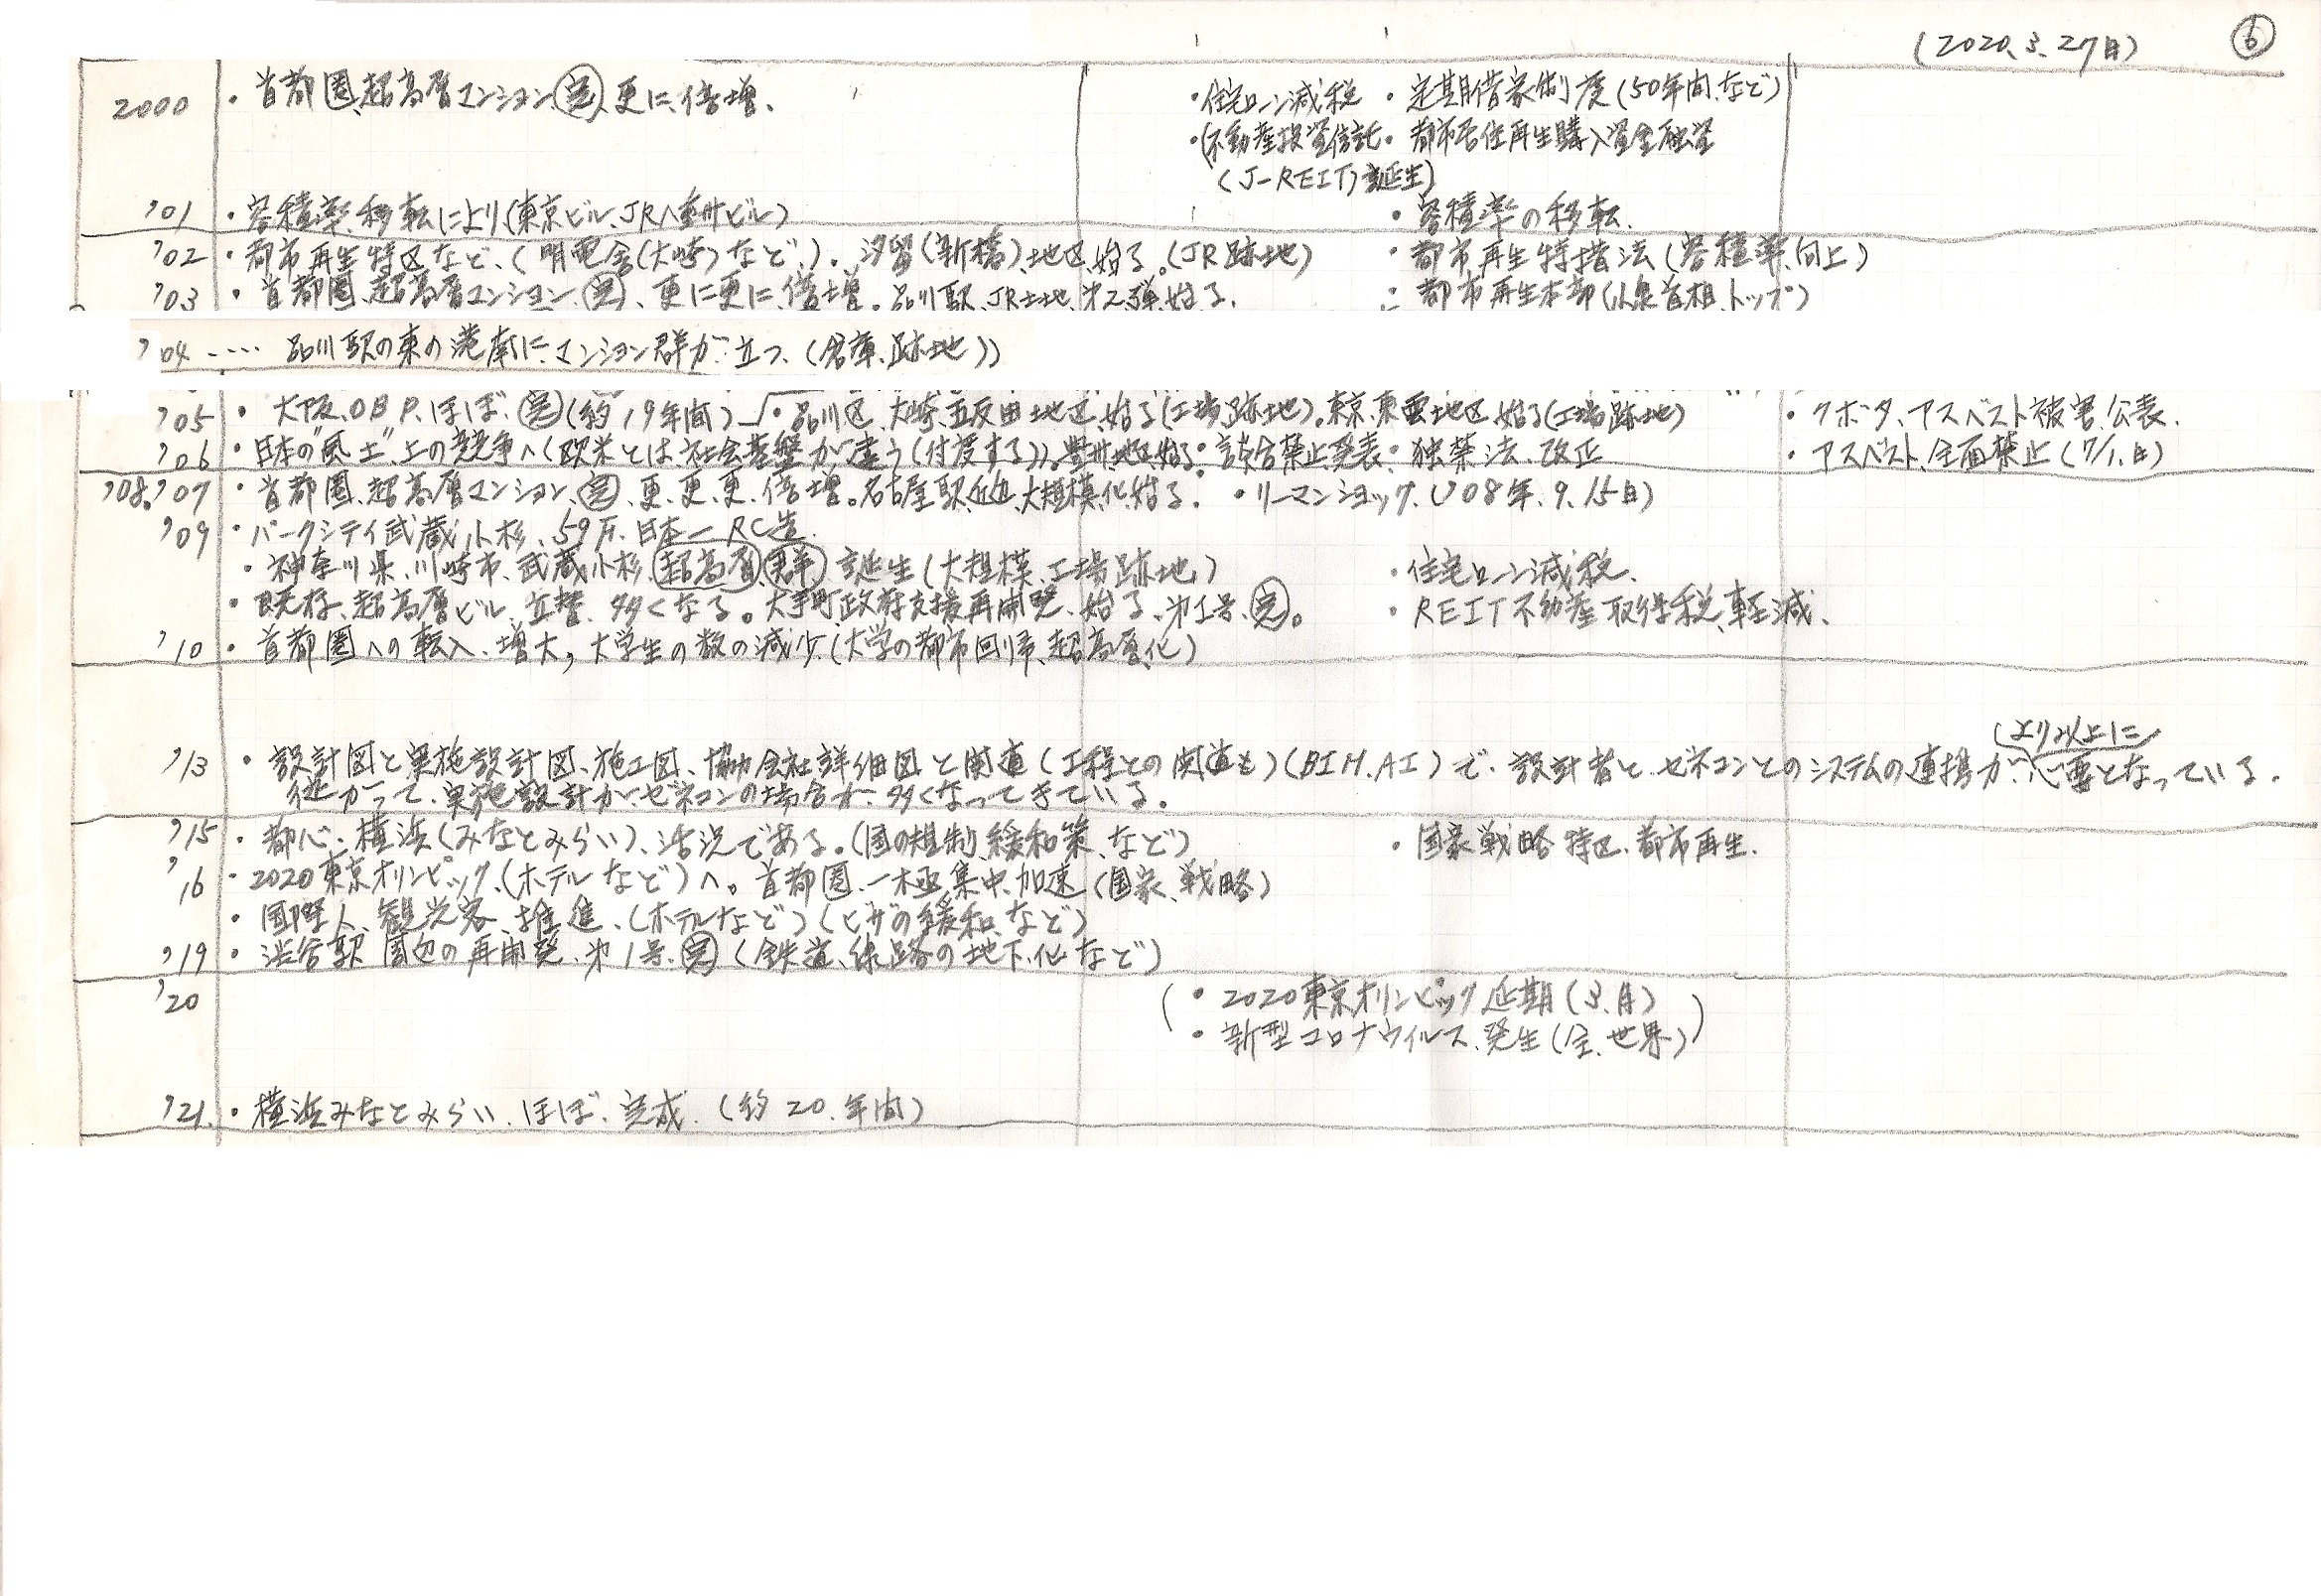 (2020.3.27日) ⑥
2000 ・首都圏、超高層マンション、㊡完、更に、倍増、 ・住宅ローン減税 ・定期借家制度(50年間、など)
・(不動産投資信託 ・都市居住再生購入資金融資
(J-REIT)誕生)
'01 ・容積率、移転により(東京ビル、JR八重洲ビル) ・容積率の移転、
'02 ・都市再生特区など、(明電舎(大崎)など、)。汐留(新橋)、地区、始る。(JR跡地) ・都市再生特措法(容積率、向上)
'03 ・首都圏、超高層マンション、完、更に更に、倍増。品川駅、JR土地、第2弾、始る、 ・都市再生本部(小泉首相、トップ)
'04 ‥‥ 品川駅の東の港南に、マンション群が立つ、(倉庫、跡地))
'05 ・大阪、OBP、ほぼ、完(約19年間) ・品川区、大崎、五反田地区、始る(工場跡地)。東京、東雲地区、始る(工場跡地) ・クボタ、アスベスト被害、公表、
'06 ・日本の"風土"、上の競争へ(欧米とは、社会基盤が違う(忖度する))。豊洲地区、始る・談合禁止、発表・独禁法、改正 ・アスベスト、全面禁止(9/1、日)
'08.'07 ・首都圏、超高層マンション、完、更、更、更、倍増。名古屋駅、近辺、大規模化、始る。 ・リーマンショック、('08年、9.15日)
'09 ・パークシティ武蔵小杉、59F、日本一RC造、
・神奈川県、川崎市、武蔵小杉、超高層、群、誕生(大規模、工場跡地) ・住宅ローン減税、
・既存、超高層ビル、立替、多くなる。大手町政府支援再開発、始る、第1号、完。 ・REIT不動産取得税、軽減、
'10 ・首都圏への転入、増大、大学生の数の減少、(大学の都市回帰、超高層化)
(より以上に
'13 ・設計図と実施設計図、施工図、協力会社詳細図と関連(工程との関連も)(BIM.AI)で、設計者と、ゼネコンとのシステムの連携が、必要となっている。
従がって、実施設計が、ゼネコンの場合が、多くなってきている。
'15 ・都心、横浜(みなとみらい)、活況である。(国の規制、緩和策、など) ・国家戦略特区、都市再生、
'16 ・2020東京オリンピック、(ホテルなど)へ。首都圏、一極集中、加速(国家、戦略)
・国際人、観光客、推進、(ホテルなど)(ビザの緩和、など)
'19 ・渋谷駅周辺の再開発、第1号、完(鉄道、線路の地下化など)
'20 (・2020東京オリンピック延期(3.月)
・新型コロナウイルス、発生(全、世界))
'21. ・横浜みなとみらい、ほぼ、完成、(約20.年間)